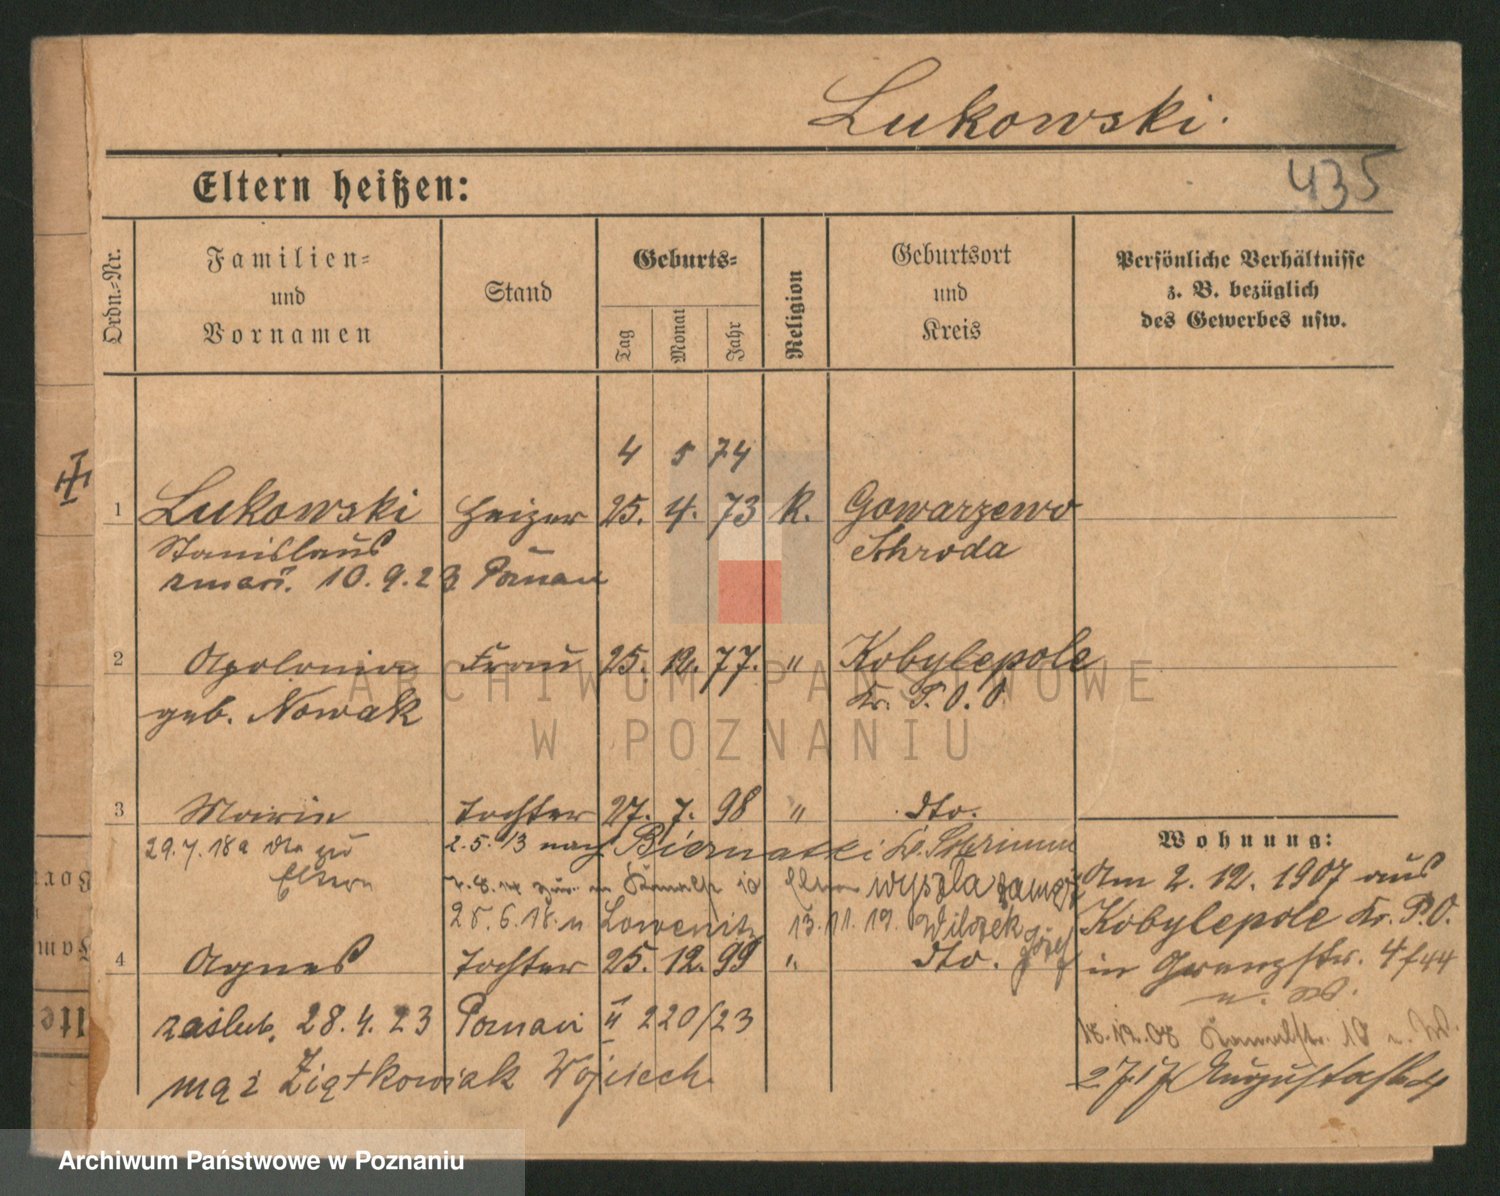 Lukowski.
435
Eltern heißen:
Ordn.-Nr.
Familien-
und
Vornamen
Stand
Geburts-
Tag
Monat
Jahr
Religion
Geburtsort
und
Kreis
Persönliche Verhältnisse
z. B. bezüglich
des Gewerbes usw.
4 5 74
1 Lukowski Heizer 25. 4. 73 K. Gowarzewo
Stanislaus Schroda
zmarł. 10.9.23 Poznań
2 Apolonia Frau 25. 12. 77. " Kobylepole
geb. Nowak Kr. P. O.
ARCHIWUM PAŃSTWOWE
W POZNANIU
3 Maria Tochter 27. 7. 98 " dto.
29.7.18 zu
Eltern
2.5.13 nach Biernatki Kr. Schrimm
wyszła zamąż
25.6.18. n 13.11.19. Wilczek
Józef
4 Agnes Tochter 25. 12. 99 " dto.
zaślub. 28.4.23 Poznań II 220/23
mąż Ziątkowiak Wojciech
Wohnung:
Am 2. 12. 1907 aus
Kobylepole Kr. P.O.
in Grenzstr. 4
18.12.08 Kanalstr. 10
Archiwum Państwowe w Poznaniu